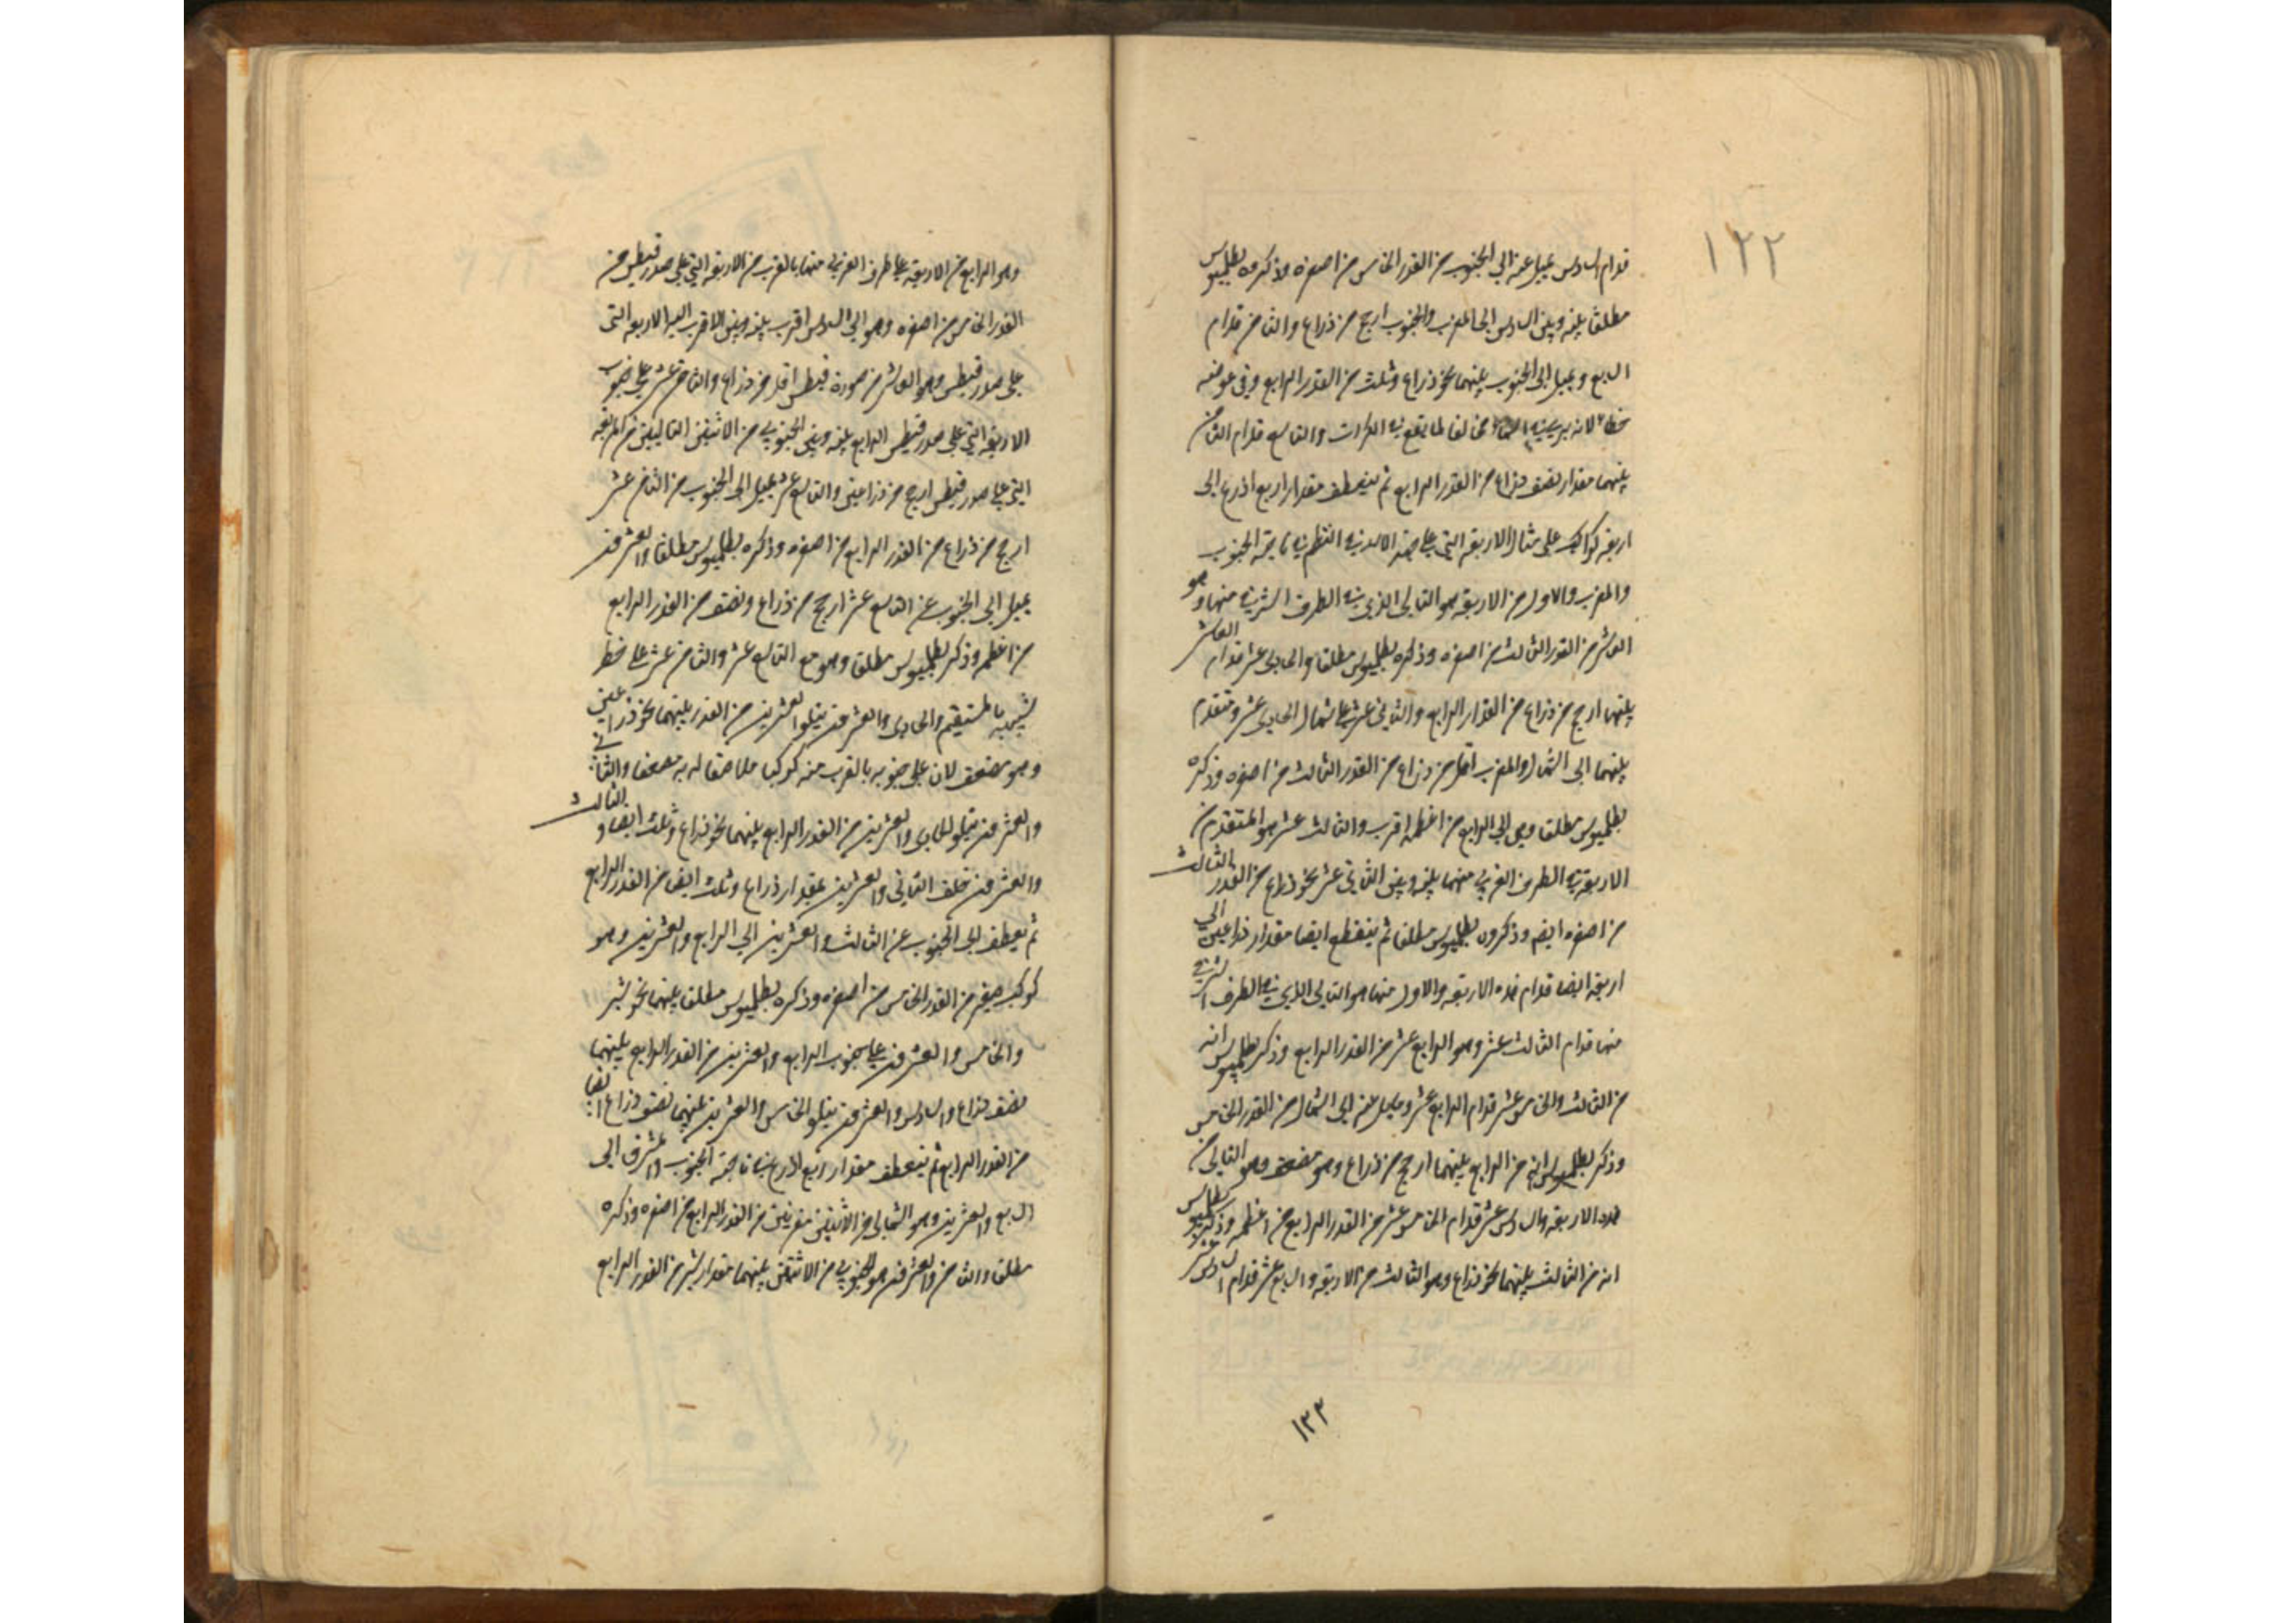 ١٢٢
قدام السادس يميل عنه الى الجنوب من القدر الخامس من اصغره وذكره بطلميوس
مطلقا بينه وبين السادس الى المغرب والجنوب ارجح من ذراع والثامن قدام
السابع ويميل الى الجنوب بينهما نحو ذراع وثلث من القدر الرابع وفي موضعه
خطا لانه يرى في السماء مخالفا لما يقع في الكرات والتاسع قدام الثامن
بينهما مقدار نصف ذراع من القدر الرابع ثم ينعطف مقدار اربع اذرع الى
اربعة كواكب على مثال الاربعة التي على النظم في ناحية الجنوب
والمغرب والاول من الاربعة هو التالي الذي في الطرف الشرقي منها وهو
العاشر من القدر الثالث من اصغره وذكره بطلميوس مطلقا والحادي عشر قدام العاشر
بينهما ارجح من ذراع من القدر الرابع والثاني عشر على شمال الحادي عشر ومتقدم
بينهما الى الشمال والمغرب اقل من ذراع من القدر الثالث من اصغره وذكره
بطلميوس مطلقا وهى الى الرابع من اعظمه اقرب والثالث عشر هو المتقدم من
الاربعة في الطرف الغربي منهما بينه وبين الثاني عشر نحو ذراع من القدر الثالث
من اصغره ايضا وذكره بطلميوس مطلقا ثم ينقطع ايضا مقدار ذراعين الى
اربعة ايضا قدام هذه الاربعة والاول منها هو التالي الذي في الطرف الشرقي
منها قدام الثالث عشر وهو الرابع عشر من القدر الرابع وذكر بطلميوس انه
من الثالث والخامس عشر قدام الرابع عشر ومايل عنه الى الشمال من القدر الخامس
وذكر بطلميوس انه من الرابع بينهما ارجح من ذراع وهو مضعف وهو التالي من
هذه الاربعة والسادس عشر قدام الخامس عشر من القدر الرابع من اعظمه وذكر بطلميوس
انه من الثالث بينهما نحو ذراع وهو الثالث من الاربعة والسابع عشر قدام السادس عشر
١٢٢
وهو الرابع من الاربعة على طرف الغربي منها بالقرب من الاربعة التي على صدر قيطس من
القدر الخامس من اصغره وهو الى السادس اقرب بينه وبين الاقرب اليه الاربعة التى
على صدر قيطس وهو العاشر من صورة قيطس اقل من ذراع والثامن عشر على جنوب
الاربعة التي على صدر قيطس الرابع بينه وبين الجنوبي من الاثنين التاليين من الاربعة
التي على صدر قيطس ارجح من ذراعين والتاسع عشر يميل الى الجنوب من الثامن عشر
ارجح من ذراع من القدر الرابع من اصغره وذكره بطلميوس مطلقا والعشرون
يميل الى الجنوب عن التاسع عشر ارجح من ذراع ونصف من القدر الرابع
من اعظمه وذكر بطلميوس مطلقا وهو مع التاسع عشر والثامن عشر على خط
شبيه بالمستقيم والحادي والعشرون يتلو العشرين من القدر بينهما نحو ذراعين
وهو مضعف لان على جنوبه بالقرب منه كوكبا ملاصقا له به مضعفا والثاني
والعشرون يتلو الحادي والعشرين من القدر الرابع بينهما نحو ذراع وثلث ايضا والثالث
والعشرون خلف الثاني والعشرين بمقدار ذراع وثلث ايضا من القدر الرابع
ثم يعطف الى الجنوب عن الثالث والعشرين الى الرابع والعشرين وهو
كوكب صغير من القدر الخامس من اصغره وذكره بطلميوس مطلقا بينهما نحو شبر
والخامس والعشرون على جنوب الرابع والعشرين من القدر الرابع بينهما
نصف ذراع والسادس والعشرون يتلو الخامس والعشرين بينهما نصف ذراع ايضا
من القدر الرابع ثم ينعطف مقدار اربع اذرع في ناحية الجنوب والمشرق الى
السابع والعشرين وهو الشمالي من الاثنين مقرنين من القدر الرابع من اصغره وذكره
مطلقا والثامن والعشرون هو الجنوبي من الاثنين بينهما مقدار شبر من القدر الرابع